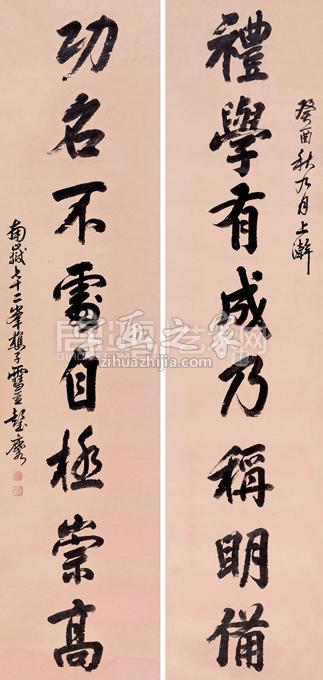 癸酉秋九月上澣
禮學有成乃稱明備
功名不處自極崇高
南嶽七十二峯樵子雪琴彭玉麐
字画之家
www.zihuazhijia.com